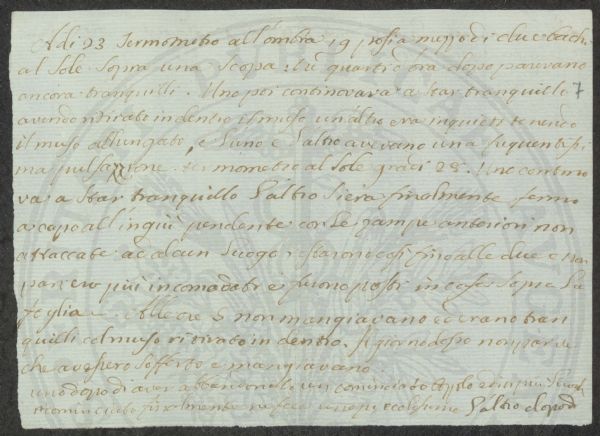 A di 23 Termometro all'ombra 19 posi a mezzo dì due bachi
al Sole sopra una Scopa: tre quarti d'ora dopo parevano
ancora tranquilli. Uno poi continovava a star tranquillo
7
avendo ritirato indentro il muso un altro era inquieto tenendo
il muso allungato, e l'uno e l'altro avevano una frequentissi
ma pulsazione. termometro al sole gradi 28. Uno continuo
va a star tranquillo l'altro s'era finalmente fermo
a capo all'ingiù pendente con le gampe anteriori non
attaccate ad alcun luogo restarono così fino alle due e
parevano più incomodati e furono posti in casa sopra la
foglia. Alle ore 5 non mangiavano ed erano tran
quilli col muso ritirato in dentro. Il giorno dopo non pareva
che avessero sofferto e mangiavano.
uno dopo di aver
finalmente l'altro dopo di